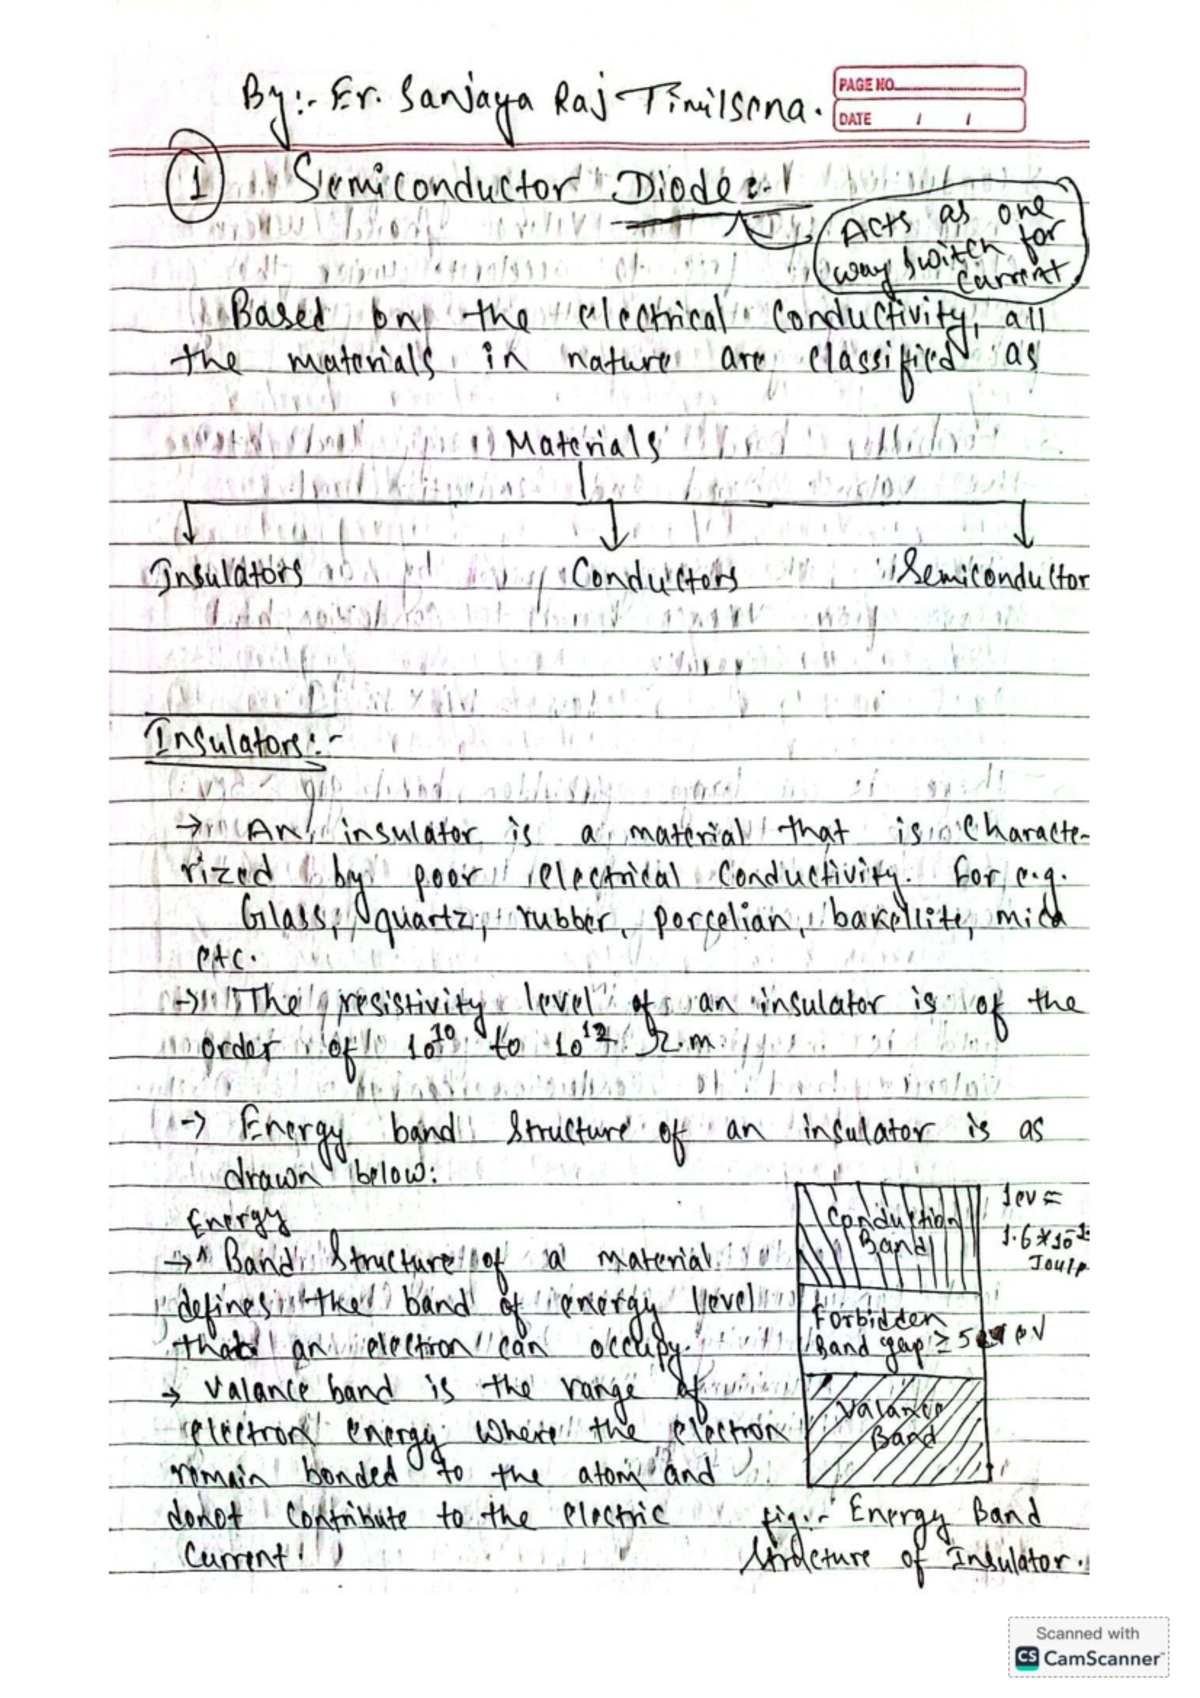 By:- Er. Sanjaya Raj Timilsena.
PAGE NO.
DATE / /
1 Semiconductor Diode:-
Acts as one
way switch for
current
Based on the electrical conductivity, all
the materials in nature are classified as
Materials
Insulators Conductors Semiconductor
Insulators:-
→ An insulator is a material that is characte-
rized by poor electrical conductivity. For e.g.
Glass, quartz, rubber, porcelian, bakellite, mica
etc.
→ The resistivity level of an insulator is of the
order of 10^10 to 10^12 Ω.m
→ Energy band structure of an insulator is as
drawn below:
Energy
→ Band structure of a material
defines the band of energy level
that an electron can occupy.
→ Valance band is the range of
electron energy where the electron
remain bonded to the atom and
donot contribute to the electric
current.
Conduction
Band
1ev =
1.6*10
Joule
Forbidden
Band gap ≥ 5 eV
Valance
Band
fig:- Energy Band
Structure of Insulator.
Scanned with
CS CamScanner